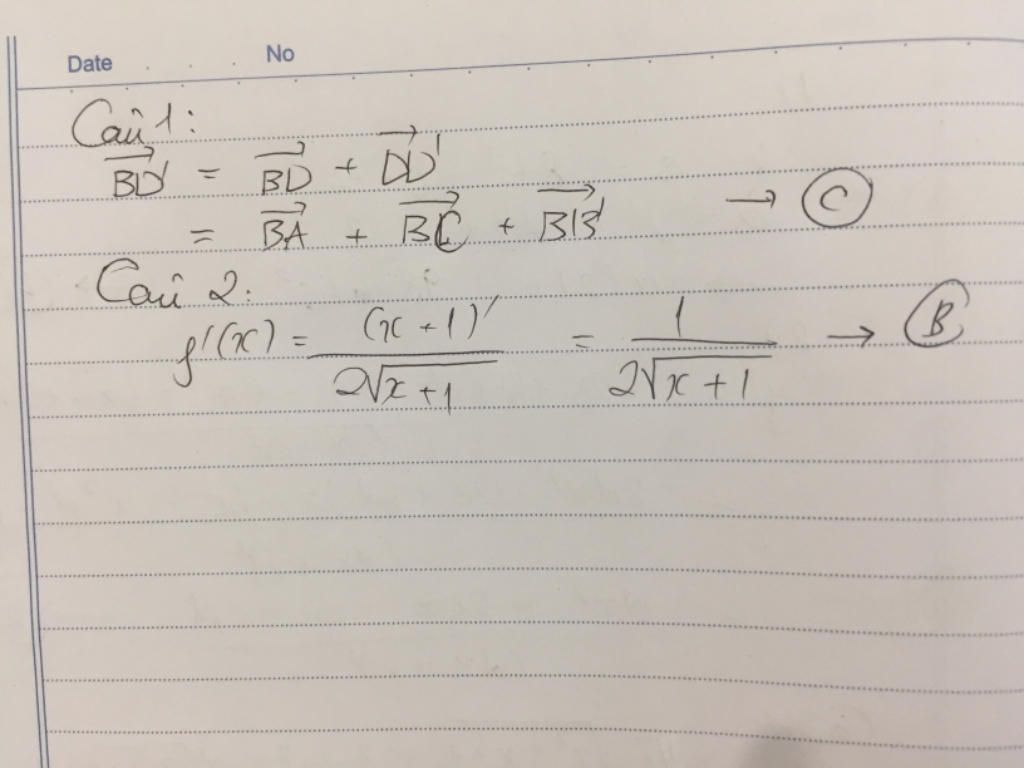 Date No
Câu 1:
BD' = BD + DD'
= BA + BC + BB' → C
Câu 2:
f'(x) = (x + 1)' / 2√x + 1 = 1 / 2√x + 1 → B